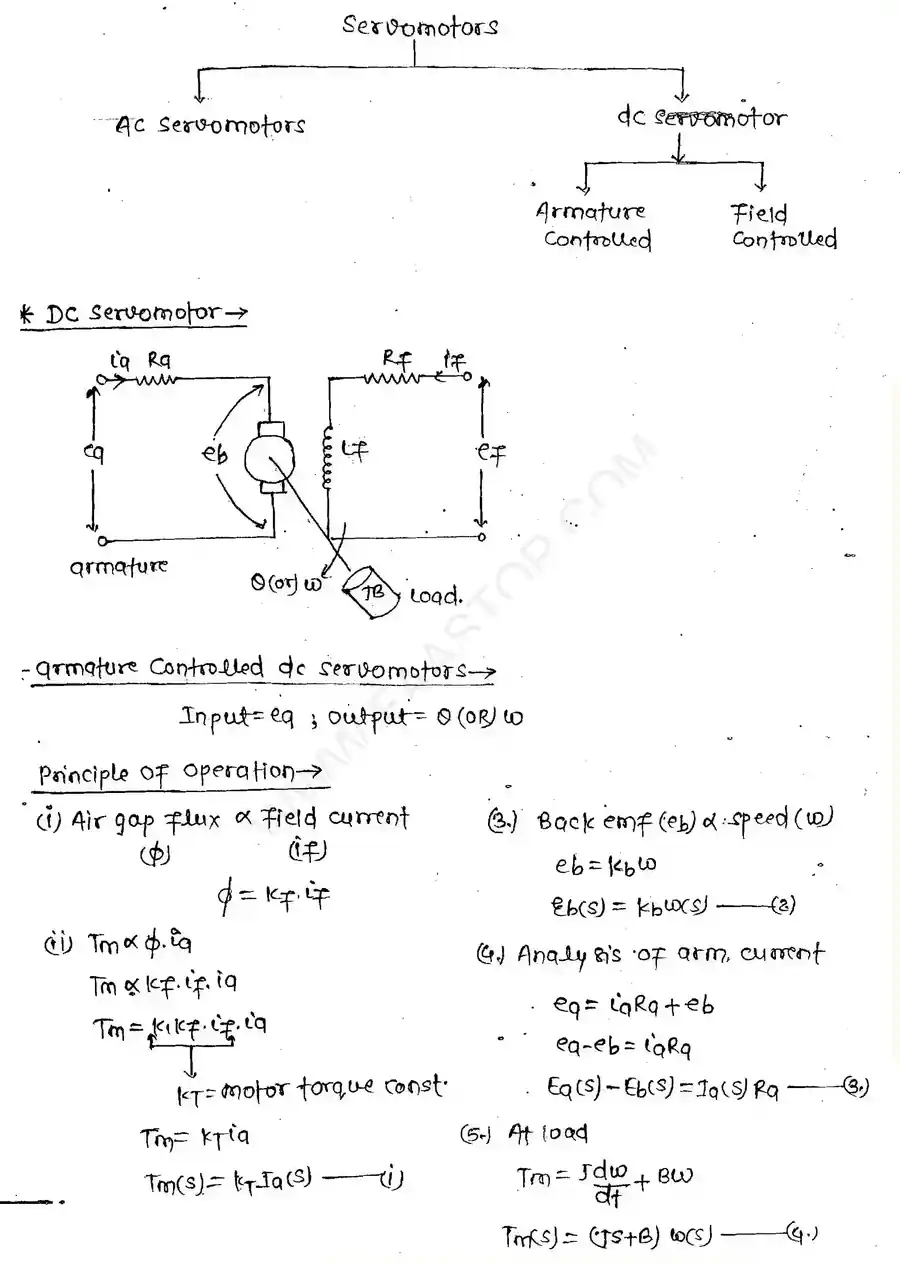 Servomotors
AC Servomotors
dc servomotor
Armature Controlled
Field Controlled
* DC Servomotor→
ia Ra
Rf if
ea
eb
Lf
ef
armature
θ(or) ω
JB
Load.
- armature Controlled dc servomotors→
Input = ea ; output = θ (OR) ω
Principle of operation→
(i) Air gap flux ∝ field current
(ϕ) (if)
ϕ = Kf. if
(ii) Tm ∝ ϕ. ia
Tm ∝ Kf. if. ia
Tm = K1 Kf. if. ia
KT = motor torque const.
Tm = KT ia
Tm(s) = KT Ia(s) —— (i)
(3.) Back emf (eb) ∝ speed (ω)
eb = Kb ω
Eb(s) = Kb ω(s) —— (2)
(4.) Analysis of arm. current
ea = iaRa + eb
ea - eb = iaRa
Ea(s) - Eb(s) = Ia(s) Ra —— (3.)
(5.) At load
Tm = J dω/dt + Bω
Tm(s) = (Js+B) ω(s) —— (4.)